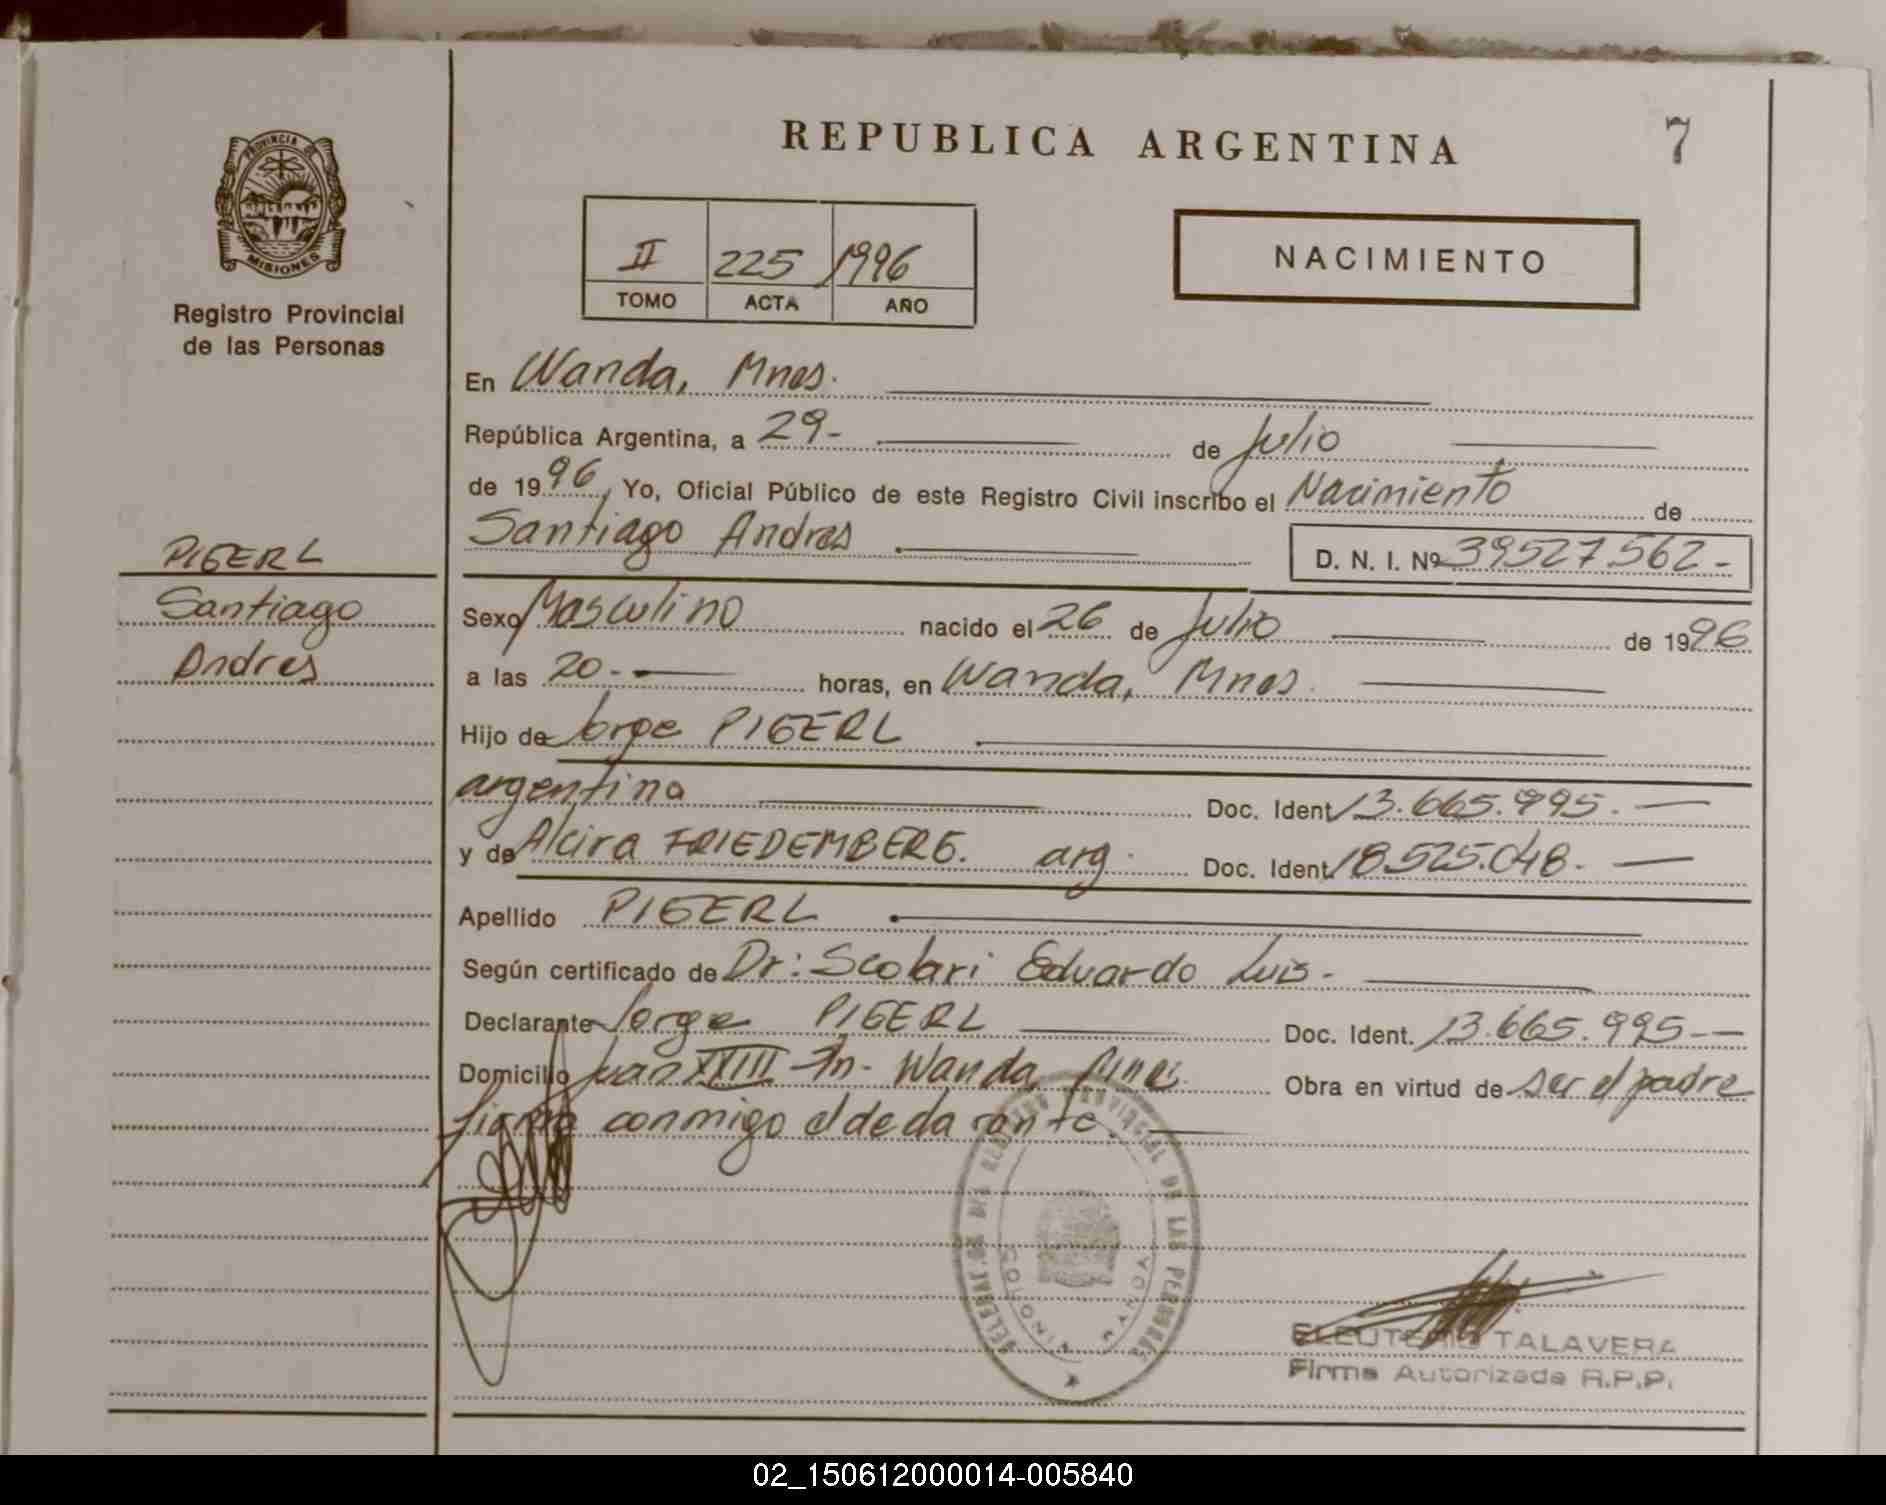 REPUBLICA ARGENTINA
7
PROVINCIA DE
MISIONES
Registro Provincial
de las Personas
II 225 1996
TOMO ACTA AÑO
NACIMIENTO
En Wanda, Mnes.
República Argentina, a 29- de Julio
de 1996, Yo, Oficial Público de este Registro Civil inscribo el Nacimiento de
Santiago Andres D. N. I. Nº 39527562-
PIGERL
Santiago
Andres
Sexo Masculino nacido el 26 de Julio de 1996
a las 20- horas, en Wanda, Mnes.
Hijo de Jorge PIGERL
argentina Doc. Ident 13.665.995.
y de Alcira FRIEDEMBERG. arg. Doc. Ident 18.525.048.
Apellido PIGERL
Según certificado de Dr: Scolari Eduardo Luis-
Declarante Jorge PIGERL Doc. Ident. 13.665.995
Domicilio Juan XXIII - Wanda Mnes. Obra en virtud de ser el padre
firma conmigo el declarante.
REGISTRO PROVINCIAL DE LAS PERSONAS
WANDA
ELEUTERIO TALAVERA
Firma Autorizada R.P.P.
02_150612000014-005840